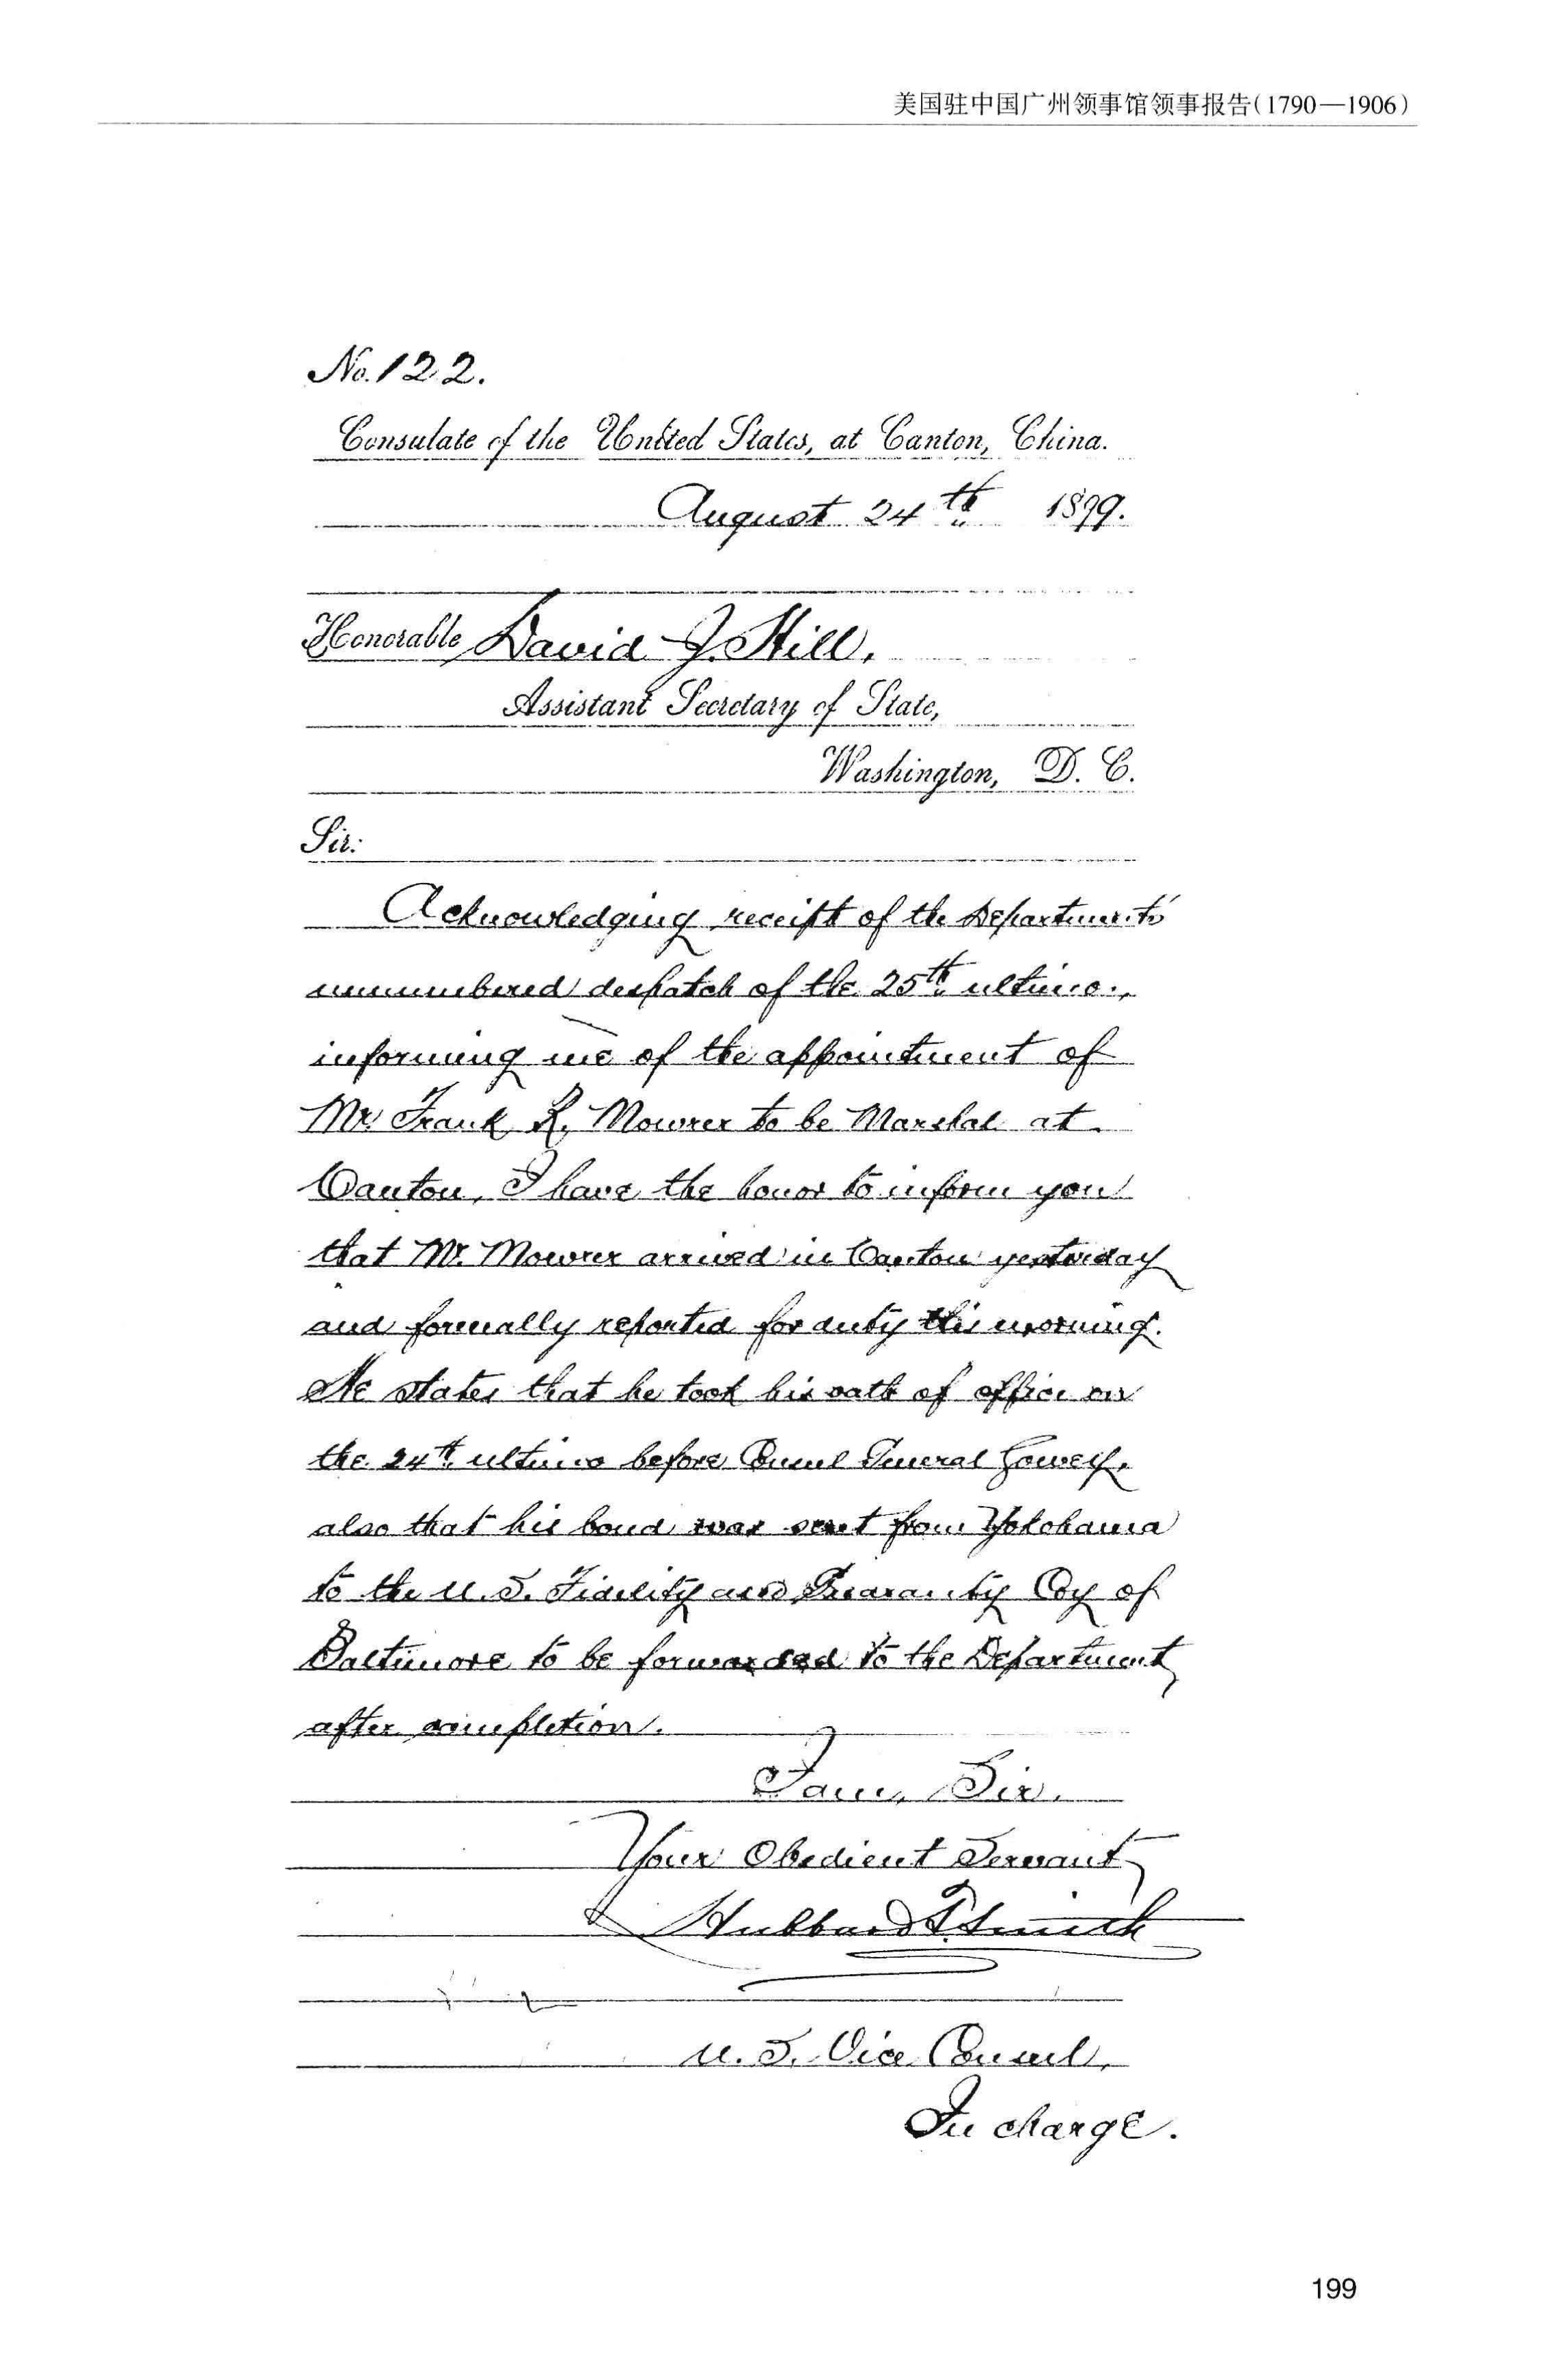 美国驻中国广州领事馆领事报告(1790—1906)
No. 122.
Consulate of the United States, at Canton, China.
August 24th 1899.
Honorable David J. Hill,
Assistant Secretary of State,
Washington, D. C.
Sir:
Acknowledging receipt of the Department's
unnumbered despatch of the 25th ultimo.,
informing me of the appointment of
Mr. Frank R. Mowrer to be Marshal at
Canton, I have the honor to inform you
that Mr. Mowrer arrived in Canton yesterday
and formally reported for duty this morning.
He states that he took his oath of office on
the 24th ultimo before Consul General Gowey,
also that his bond was sent from Yokohama
to the U. S. Fidelity and Guaranty Coy of
Baltimore to be forwarded to the Department
after completion.
I am, Sir,
Your Obedient Servant
Hubbard T. Smith
U. S. Vice Consul,
In charge.
199